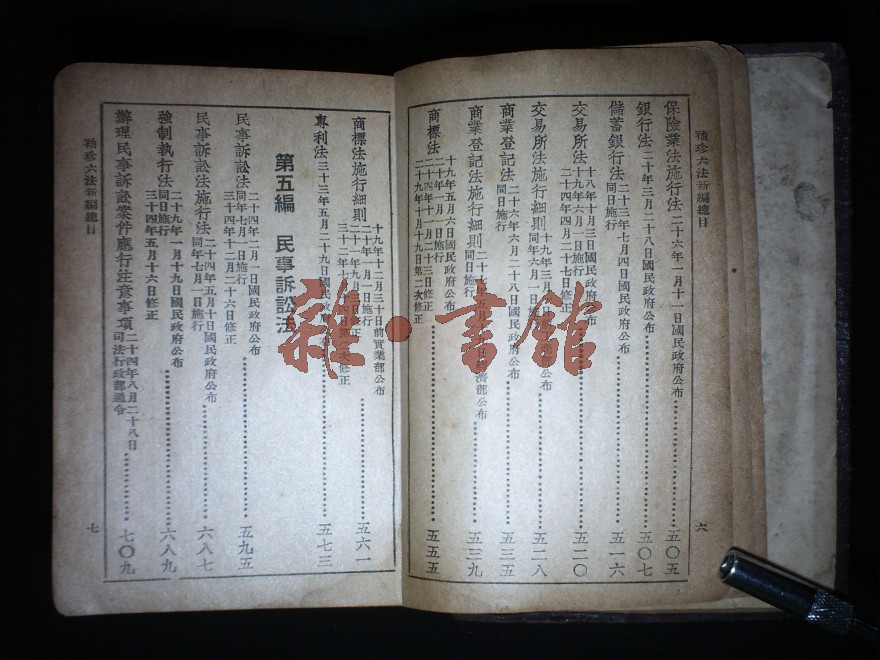 袖珍六法新編總目
六
保險業法施行法 二十六年一月十一日國民政府公布 五〇五
銀行法 二十年三月二十八日國民政府公布 五〇七
儲蓄銀行法 二十三年七月四日國民政府公布
同日施行 五一六
交易所法 十八年十月三日國民政府公布
十九年六月一日施行
二十四年四月二十七日修正 五二〇
交易所法施行細則 五二八
商業登記法 二十六年六月二十八日國民政府公布
同日施行 五三五
商業登記法施行細則
同日施行 五三九
商標法 十九年五月六日國民政府公布
二十年一月一日施行
二十四年十一月二十三日修正
二十九年十月十九日第二次修正 五五五
商標法施行細則 十九年十二月三十日前實業部公布
二十年一月一日施行 五六一
專利法 三十三年五月二十九日國民政府 五七三
第五編 民事訴訟法
民事訴訟法 二十四年二月一日國民政府公布
同年七月一日施行
三十四年十二月二十六日修正 五九五
民事訴訟法施行法 二十四年五月十日國民政府公布
同年七月一日施行
三十四年十二月二十六日修正 六八七
強制執行法 二十九年一月十九日國民政府公布
同日施行
三十四年五月十六日修正 六八九
辦理民事訴訟案件應行注意事項 二十四年八月二十八日
司法行政部通令 七〇九
袖珍六法新編總目
七
雜·書館